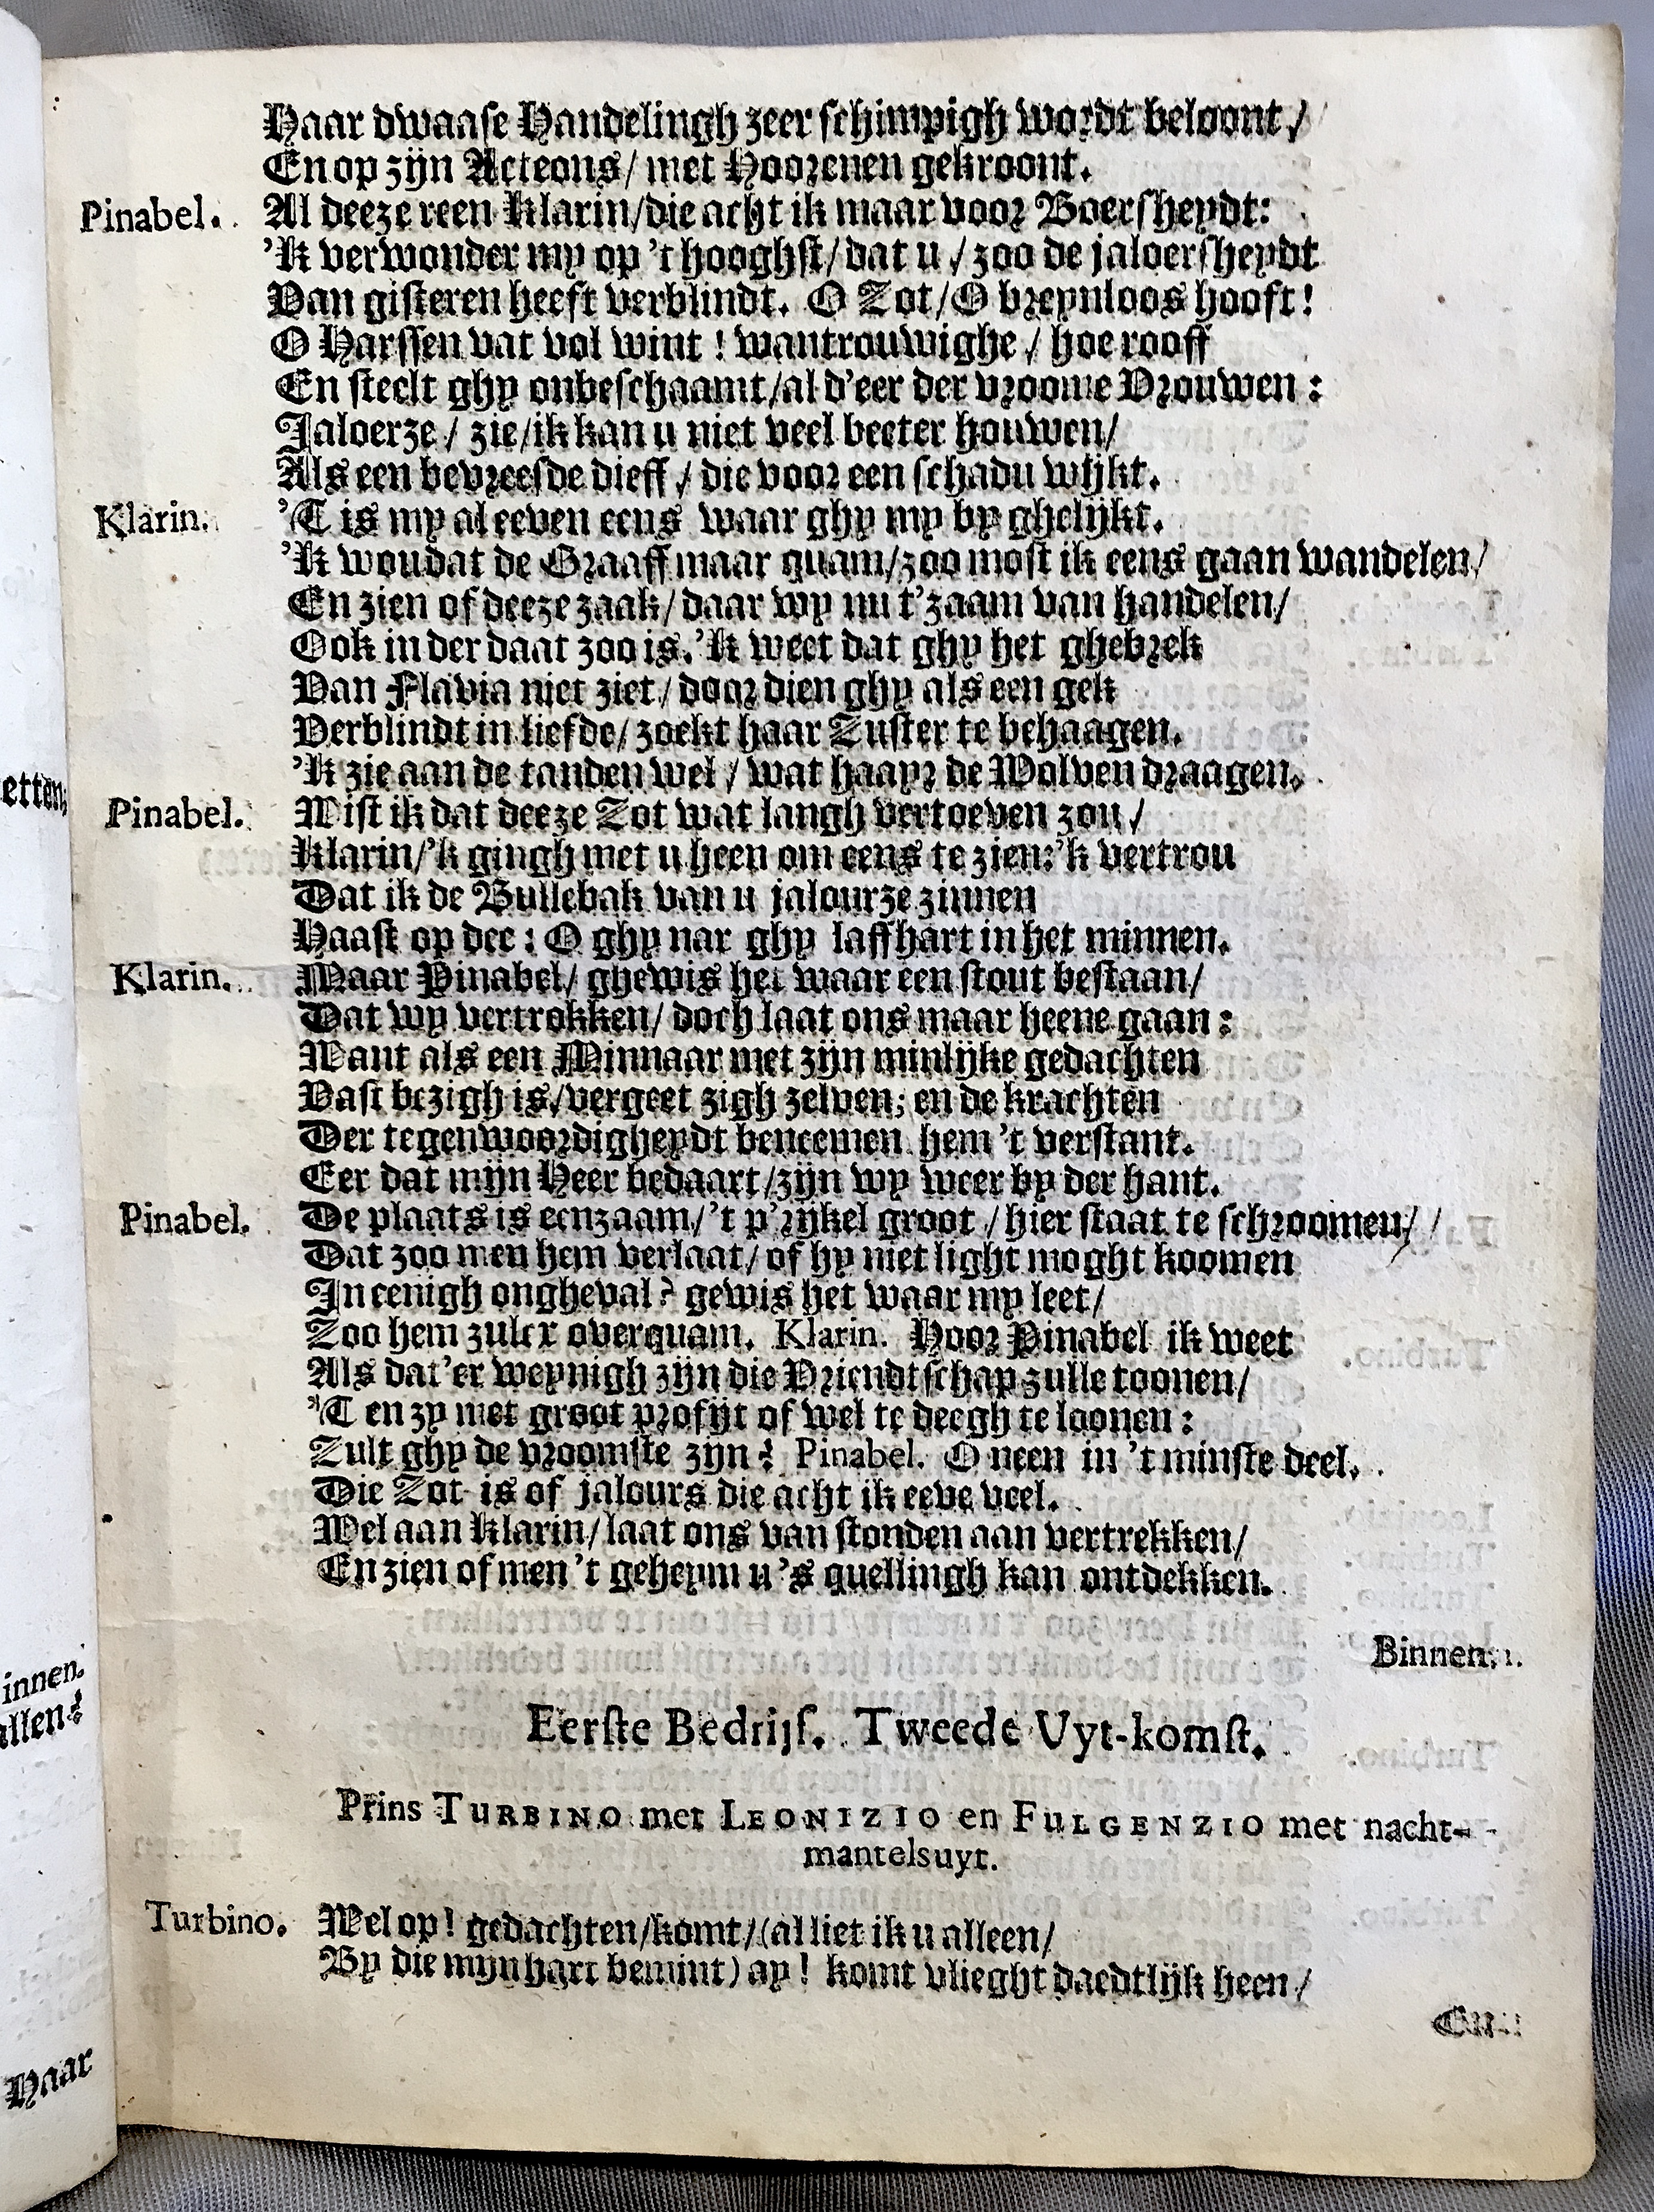 Haar dwaase Handelingh zeer schimpigh wordt beloont/
En op zijn Acteons/ met Hoorenen gekroont.
Pinabel. Al deeze reen Klarin/die acht ik maar voor Boersheydt:
'Ik verwonder my op 't hooghst/ dat u / zoo de jaloersheydt
Van gisteren heeft verblindt. O Zot/O breynloos hooft!
O Harssen vat vol wint ! wantrouwighe / hoe rooff
En steelt ghy onbeschaamt/al d'eer der vroome Vrouwen :
Jaloerze / zie/ik kan u niet veel beeter houwen/
Als een bevreesde dieff / die voor een schadu wijkt.
Klarin. 'T is my al eeven eens waar ghy my by ghelijkt.
'Ik woudat de Graaff maar quam/zoo most ik eens gaan wandelen/
En zien of deeze zaak/ daar wy nu t'zaam van handelen/
Ook in der daat zoo is. 'Ik weet dat ghy het ghebrek
Van Flavia niet ziet/ door dien ghy als een gek
Verblindt in liefde/ zoekt haar Zuster te behaagen.
'Ik zie aan de tanden wel / wat haayr de Wolven draagen.
Pinabel. Wist ik dat deeze Zot wat langh vertoeven zou/
Klarin/'k gingh met u heen om eens te zien:'k vertrou
Dat ik de Bullebak van u jalourze zinnen
Haast op dee : O ghy nar ghy laffhart in het minnen.
Klarin. Maar Pinabel/ ghewis het waar een stout bestaan/
Dat wy vertrokken/ doch laat ons maar heene gaan :
Want als een Minnaar met zijn minlijke gedachten
Vast bezigh is/vergeet zigh zelven; en de krachten
Der tegenwoordigheydt beneemen hem 't verstant.
Eer dat mijn Heer bedaart/zijn wy weer by der hant.
Pinabel. De plaats is eenzaam/'t p'rijkel groot / hier staat te schroomen/
Dat zoo men hem verlaat/ of hy niet light moght koomen
In eenigh ongheval? gewis het waar my leet/
Zoo hem zulcx overquam. Klarin. Hoor Pinabel ik weet
Als dat'er weynigh zijn die Vriendtschap zulle toonen/
'T en zy met groot profijt of wel te deegh te loonen :
Zult ghy de vroomste zijn ? Pinabel. O neen in 't minste deel.
Die Zot is of jalours die acht ik eeve veel.
Wel aan Klarin/laat ons van stonden aan vertrekken/
En zien of men 't geheym u 's quellingh kan ontdekken.
Binnen.
Eerste Bedrijf. Tweede Uyt-komst.
Prins TURBINO met LEONIZIO en FULGENZIO met nacht-
mantelsuyt.
Turbino. Wel op! gedachten/komt/(al liet ik u alleen/
By die mijn hart bemint) ay! komt vlieght daedtlijk heen/
En
etten;
innen.
allen?
Haar